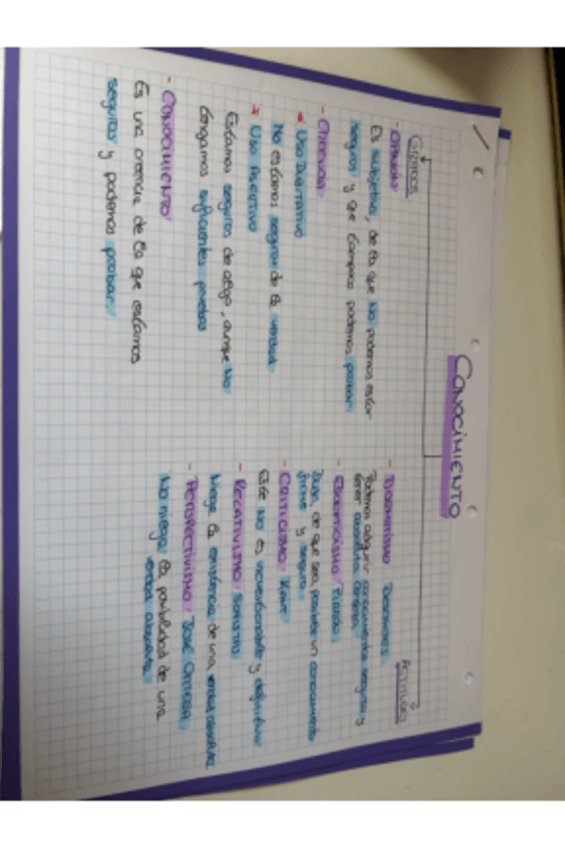 CONOCIMIENTO
GRADOS
- OPINIÓN
Es subjetiva, de la que no podemos estar
seguros y que tampoco podemos probar.
- CREENCIA
→ USO DUBITATIVO
No estamos seguros de la verdad.
→ USO ASERTIVO
Estamos seguros de algo, aunque no
tengamos suficientes pruebas
- CONOCIMIENTO
Es una creencia de la que estamos
seguros y podemos probar.
ACTITUDES
- DOGMATISMO DESCARTES
Podemos adquirir conocimientos seguros y
tener absoluta certeza
- ESCEPTICISMO / PIRRÓN
Duda, de que sea posible un conocimiento
firme y seguro.
- CRITICISMO / KANT
Este no es incuestionable y definitivo
- RELATIVISMO / SOFISTAS
Niega la existencia de una verdad absoluta
- PERSPECTIVISMO / JOSÉ ORTEGA
No niega la posibilidad de una
verdad absoluta